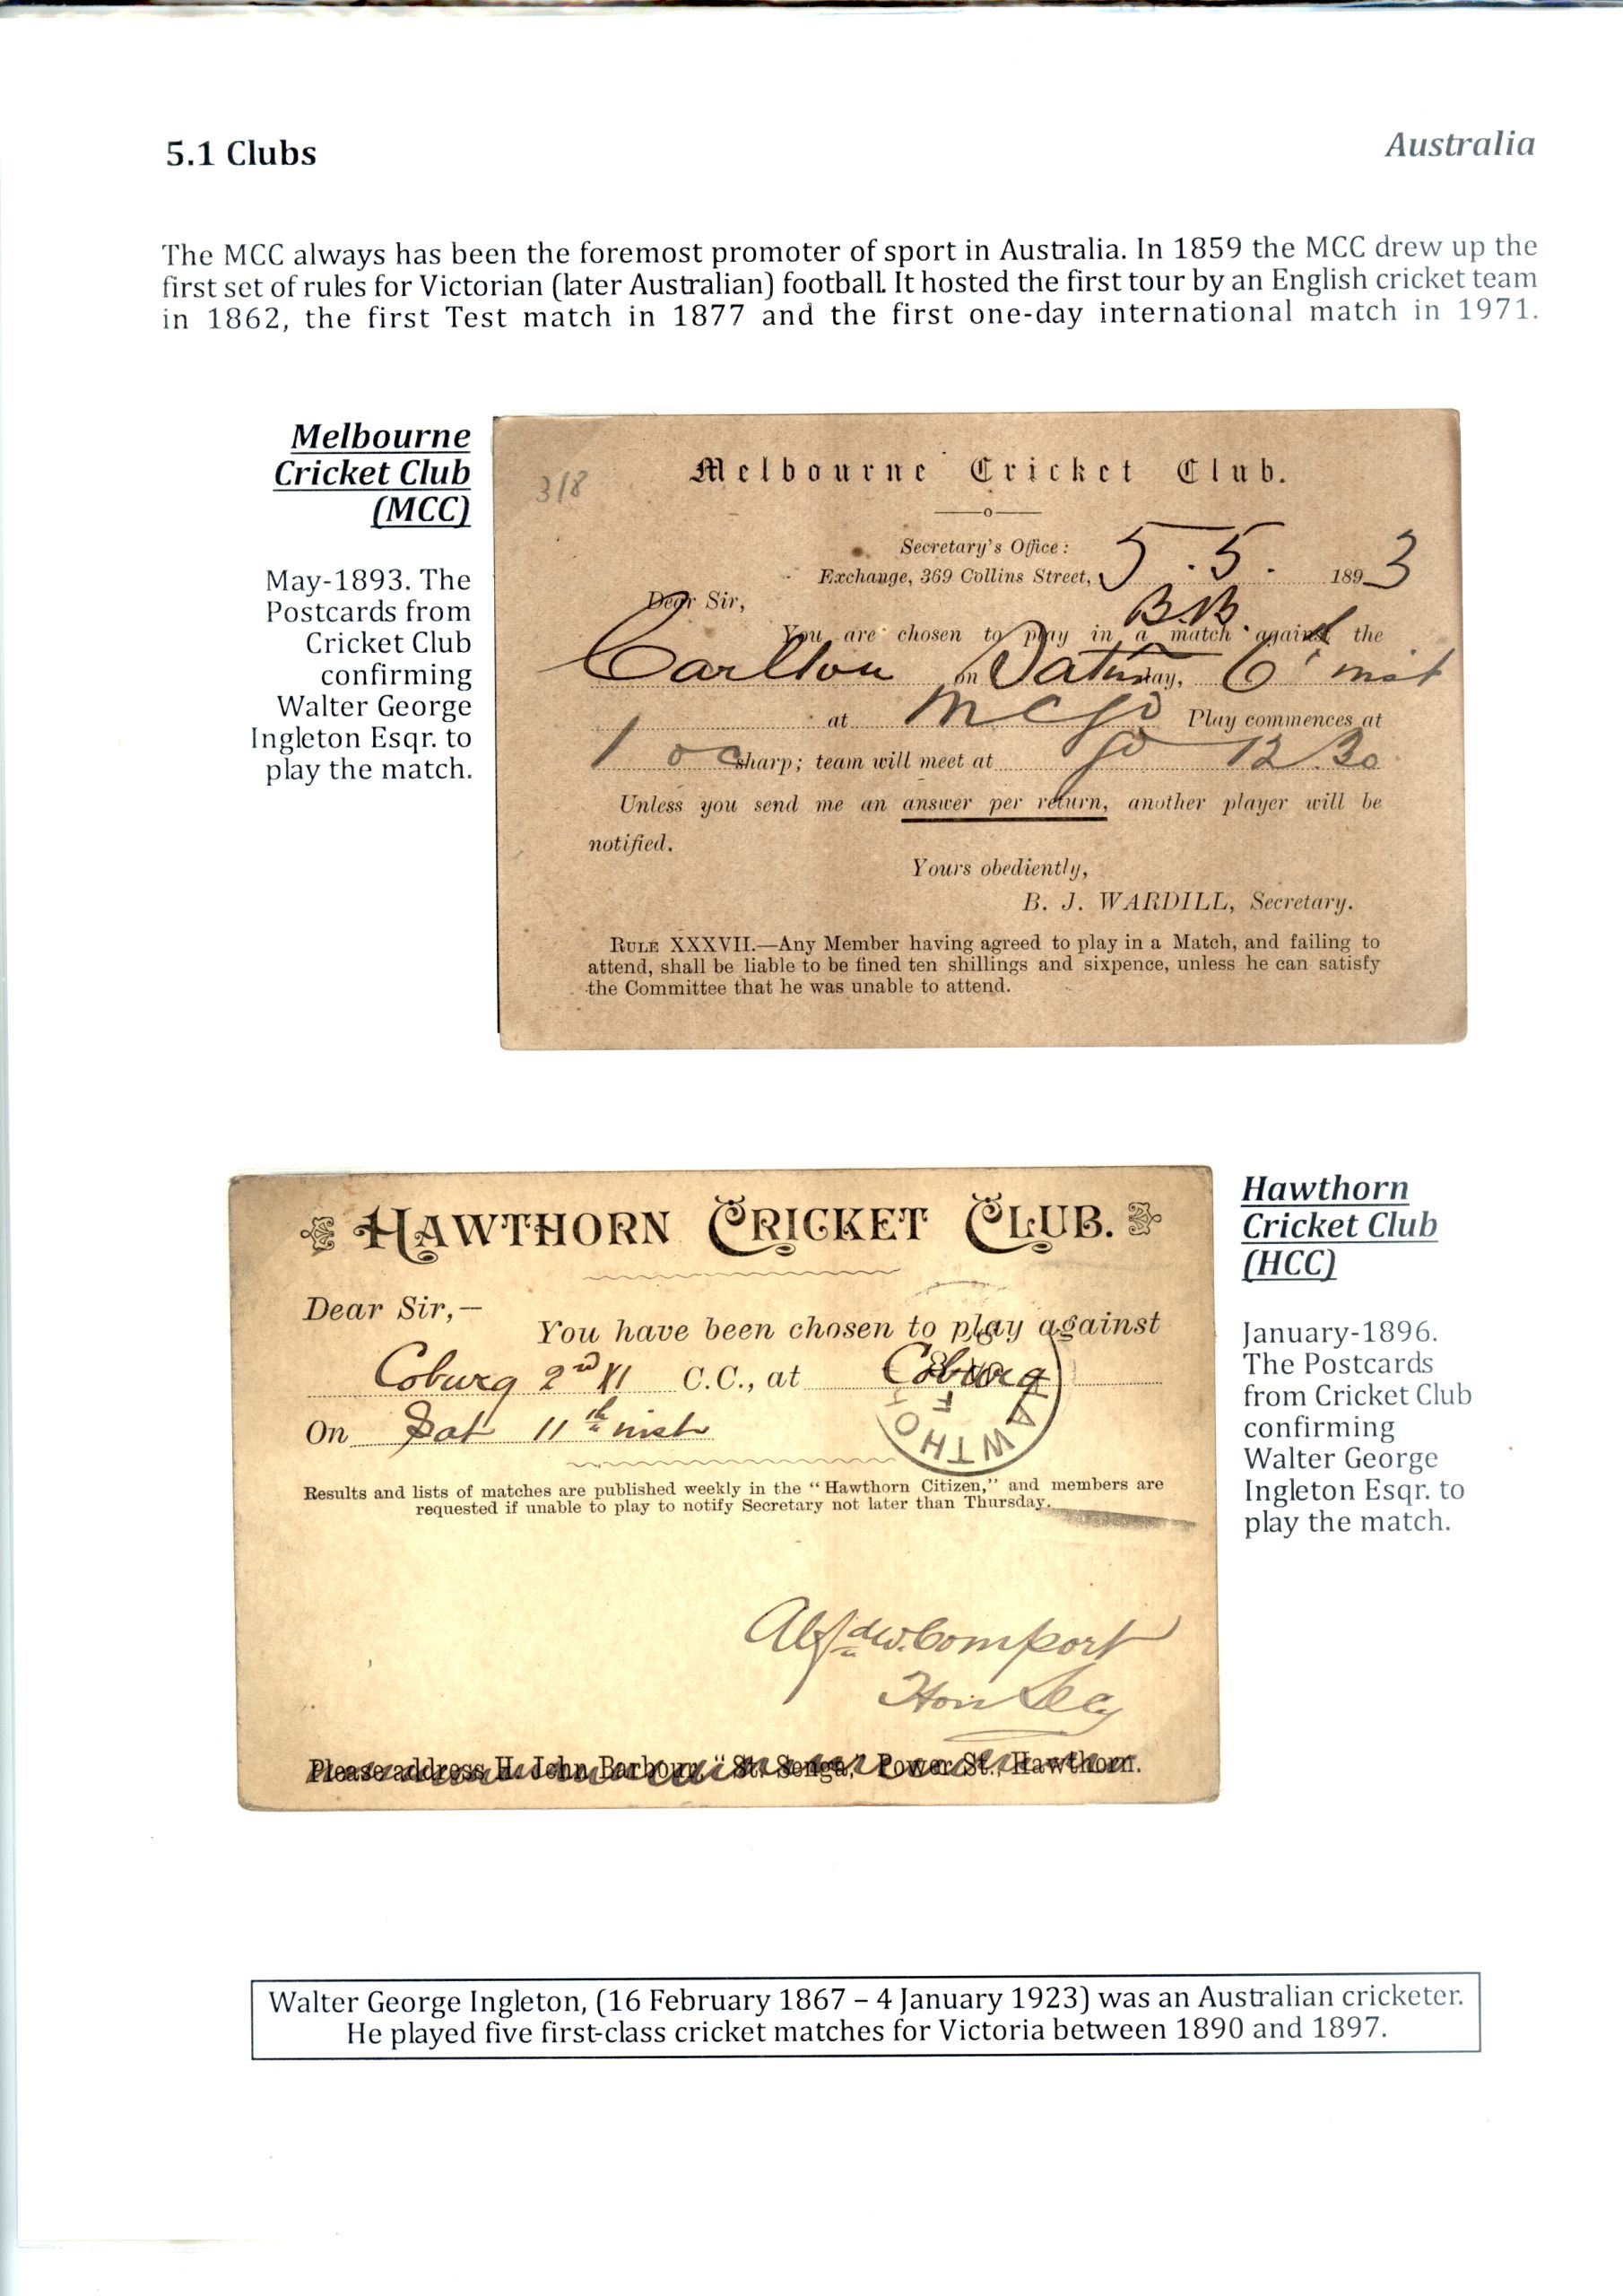 5.1 Clubs
Australia
The MCC always has been the foremost promoter of sport in Australia. In 1859 the MCC drew up the
first set of rules for Victorian (later Australian) football. It hosted the first tour by an English cricket team
in 1862, the first Test match in 1877 and the first one-day international match in 1971.
Melbourne
Cricket Club
(MCC)
May-1893. The
Postcards from
Cricket Club
confirming
Walter George
Ingleton Esqr. to
play the match.
3/8
Melbourne Cricket Club.
Secretary's Office:
Exchange, 369 Collins Street, 5.5. 1893
Dear Sir,
B.B.
You are chosen to play in a match against the
Carlton on Saturday, 6 inst
at MCG Play commences at
1 o c sharp; team will meet at G 12.30
Unless you send me an answer per return, another player will be
notified.
Yours obediently,
B. J. WARDILL, Secretary.
RULE XXXVII.—Any Member having agreed to play in a Match, and failing to
attend, shall be liable to be fined ten shillings and sixpence, unless he can satisfy
the Committee that he was unable to attend.
HAWTHORN CRICKET CLUB.
Dear Sir,—
You have been chosen to play against
Coburg 2nd XI C.C., at Coburg
On Sat 11th inst
HAWTHO
Results and lists of matches are published weekly in the "Hawthorn Citizen," and members are
requested if unable to play to notify Secretary not later than Thursday.
Alfd W. Comport
Hon Secy
Please address H. John Barbour, "St. Senga," Power St., Hawthorn.
Hawthorn
Cricket Club
(HCC)
January-1896.
The Postcards
from Cricket Club
confirming
Walter George
Ingleton Esqr. to
play the match.
Walter George Ingleton, (16 February 1867 – 4 January 1923) was an Australian cricketer.
He played five first-class cricket matches for Victoria between 1890 and 1897.